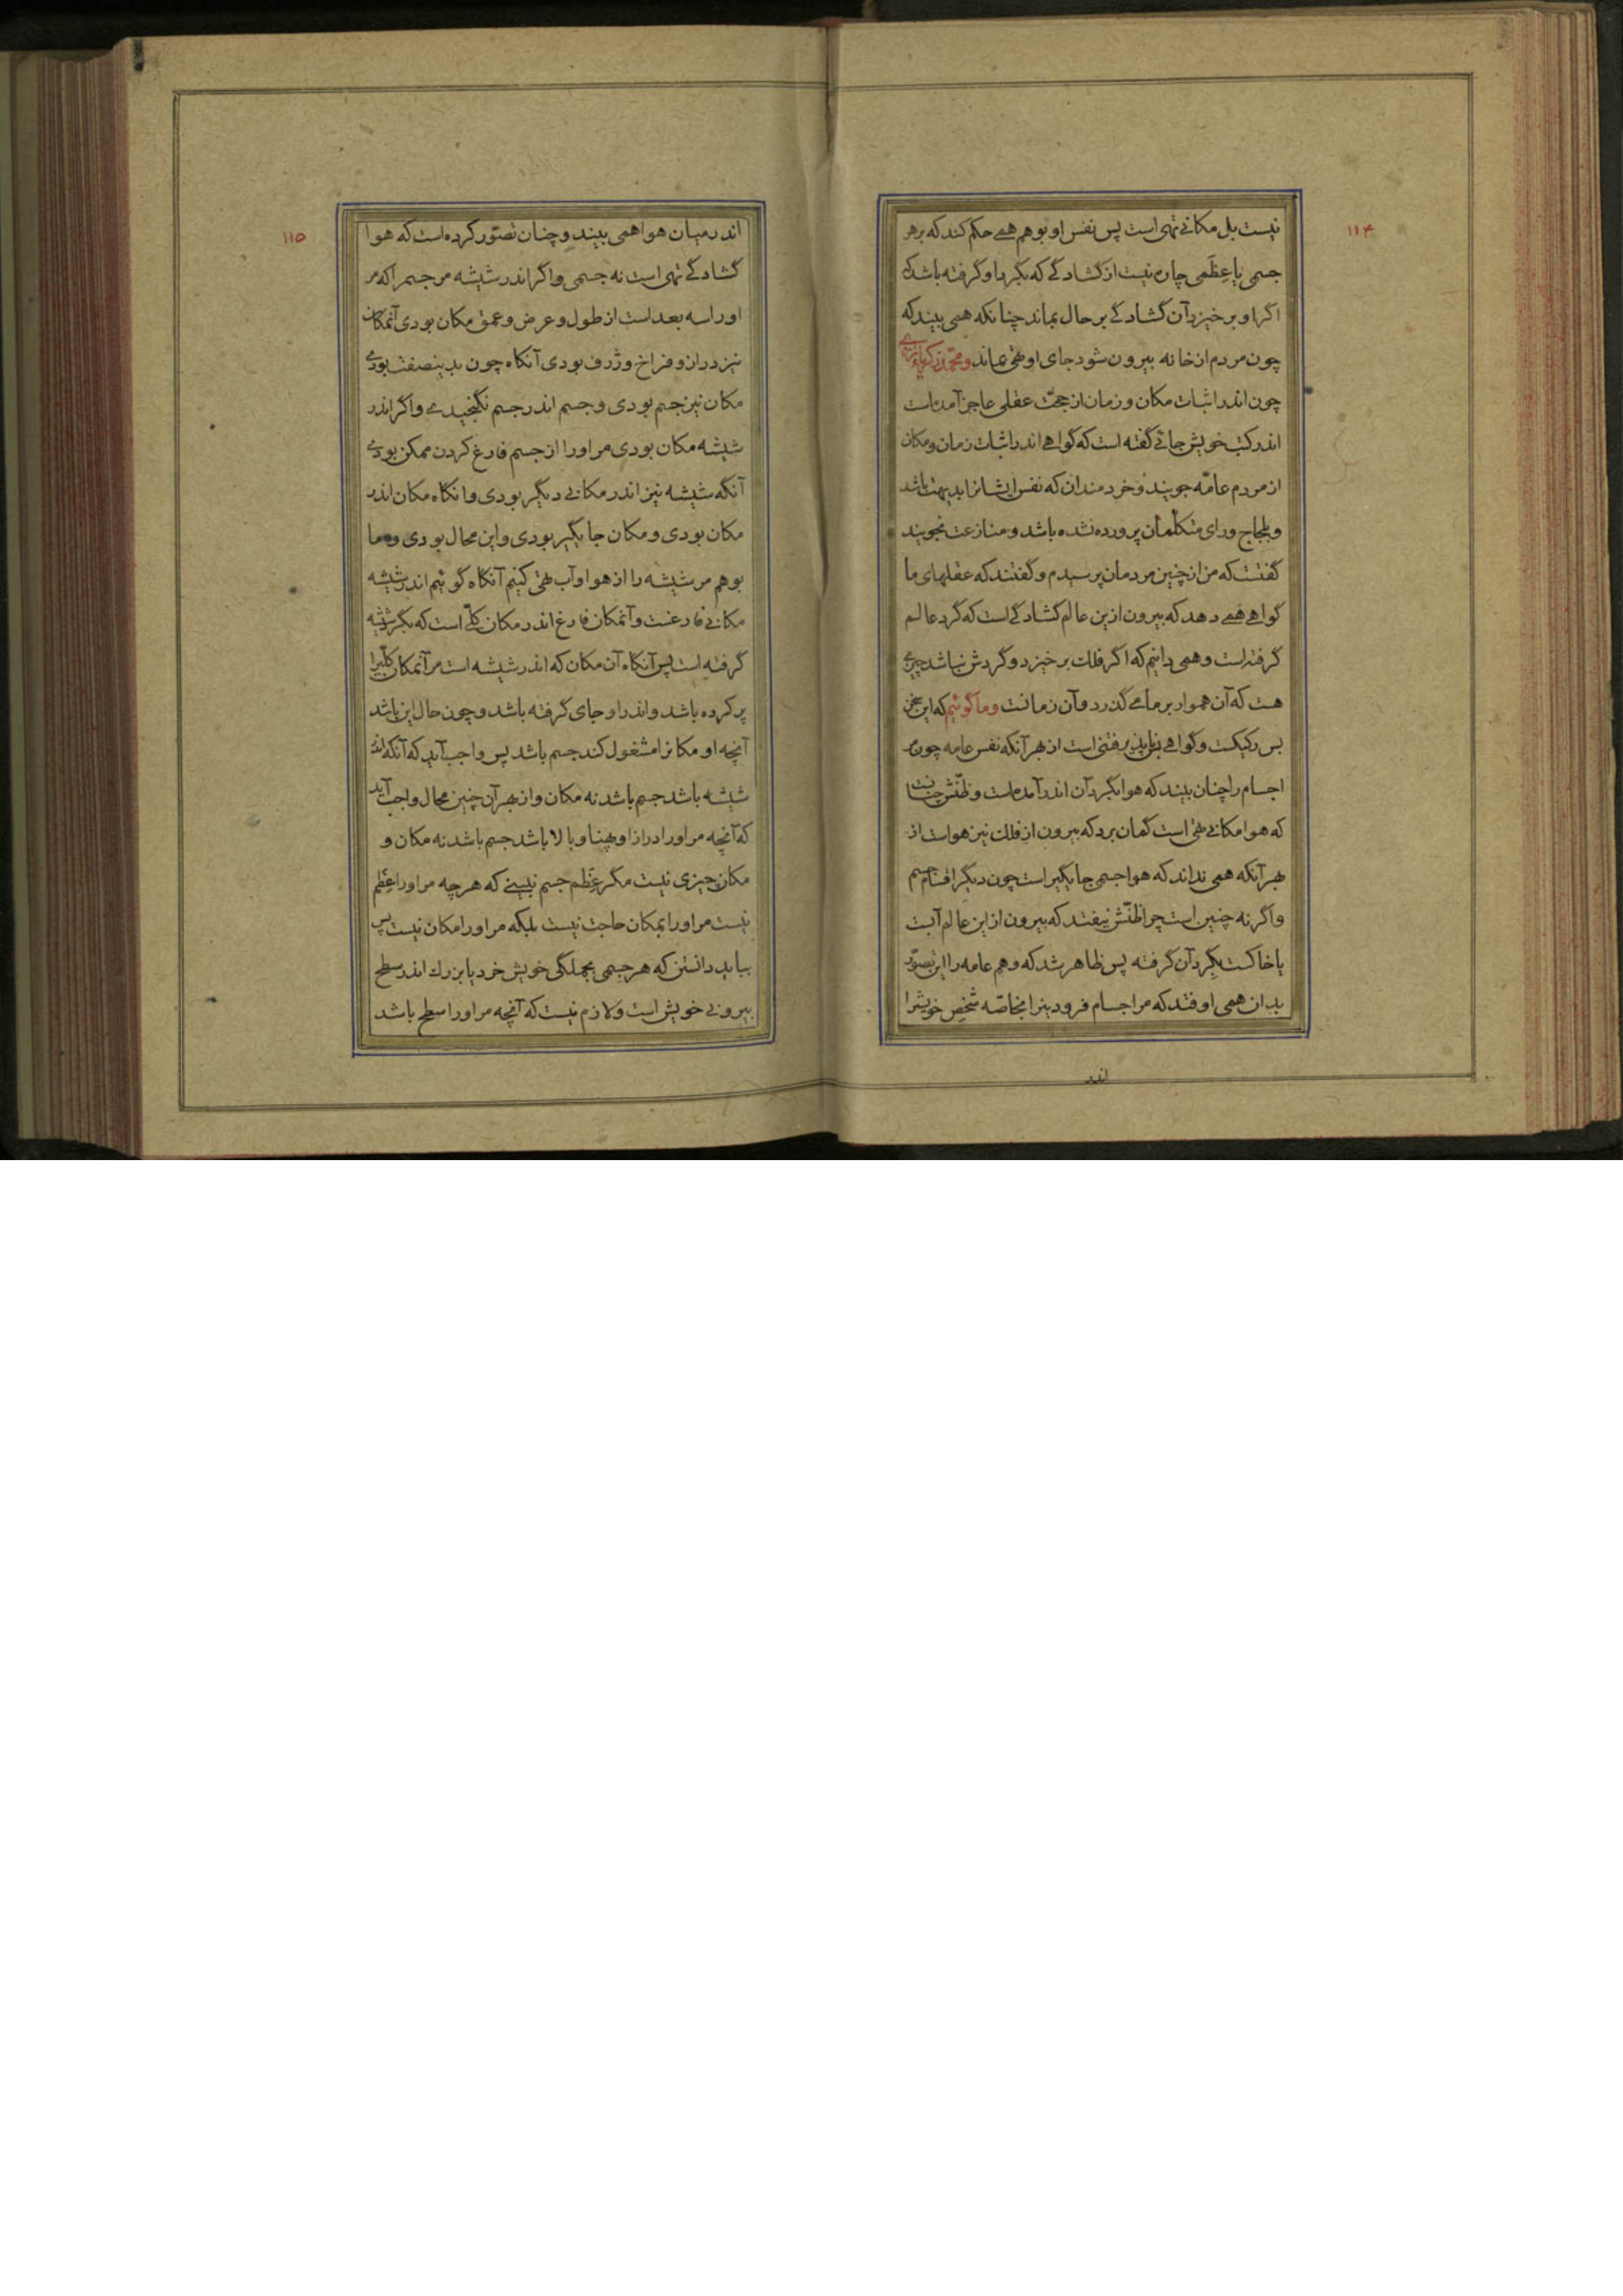 ۱۱۴
نیست بل مکانی تهی است پس نفس او بوهم همی حکم کند که بر هر
جسمی با عِظَمی چاره نیست از گشادگی که بگرد او گرفته باشد که
اگر او برخیزد آن گشادگی بر حال بماند چنانکه همی بیند که
چون مردم از خانه بیرون شود جای او تهی بماند و محمد زکریاء رازی
چون اندر اثبات مکان و زمان از حجت عقلی عاجز آمده است
اندر کتب خویش جائی گفته است که گواهی اندر اثبات زمان و مکان
از مردم عامّه جویند و خردمندان که نفس ایشانرا بدیهت باشد
و بلجاج و رای متکلّمان پرورده نشده باشد و منازعت نجویند
گفتست که من از چنین مردمان پرسیدم و گفتند که عقلهای ما
گواهی همی دهد که بیرون ازین عالم گشادگی است که گرد عالم
گرفته است و همی دانیم که اگر فلک برخیزد و گردش نباشد چیزی
هست که آن هموار بر ما می گذرد و آن زمانست و ما گوئیم که این سخن
بس رکیکست و گواهی بناپذیرفتنی است از بهر آنکه نفس عامه چون مر
اجسام را چنان بیند که هوا بگرد آن اندر آمده است و ظنّش چنانست
که هوا مکانی تهی است گمان برد که بیرون از فلک نیز هواست از
بهر آنکه همی نداند که هوا جسمی جایگیر است چون دیگر اقسام جسم
و اگر نه چنین است چرا ظنّش نیفتد که بیرون ازین عالم آبست
یا خاکست بگِرد آن گرفته پس ظاهر شد که وهم عامه را این تصوّر
بدان همی اوفتد که مر اجسام فرودینرا بخاصّه شخص خویشرا
اندر
۱۱۵
اندر میان هوا همی بیند و چنان تصوّر کرده است که هوا
گشادگی تهی است نه جسمی و اگر اندر شیشه مر جسم را که مر
او را سه بعد است از طول و عرض و عمق مکان بودی آنمکان
نیز دراز و فراخ و ژرف بودی آنگاه چون بدینصفت بودی
مکان نیز جسم بودی و جسم اندر جسم نگنجیدی و اگر اندر
شیشه مکان بودی مر او را از جسم فارغ کردن ممکن بودی
آنگه شیشه نیز اندر مکانی دیگر بودی و انگاه مکان اندر
مکان بودی و مکان جایگیر بودی و این محال بودی و ما
بوهم مر شیشه را از هوا و آب تهی کنیم آنگاه گوئیم اندر شیشه
مکانی فارغست و آنمکان فارغ اندر مکان کلّی است که بگرد شیشه
گرفته است پس آنگاه آن مکان که اندر شیشه است مر آنمکان کلّیرا
پر کرده باشد و اندر او جای گرفته باشد و چون حال این باشد
آنچه او مکانرا مشغول کند جسم باشد پس واجب آید که آنکه اندر
شیشه باشد جسم باشد نه مکان و از بهر آن چنین محال واجب آید
که آنچه مر او را درازا و پهنا و بالا باشد جسم باشد نه مکان و
مکان چیزی نیست مگر عِظَم جسم نبینی که هر چه مر او را عِظَم
نیست مر او را بمکان حاجت نیست بلکه مر او را مکان نیست پس
بباید دانستن که هر جسمی بجملگی خویش خرد یا بزرگ اندر سطح
بیرونی خویش است و لازم نیست که آنچه مر او را سطح باشد